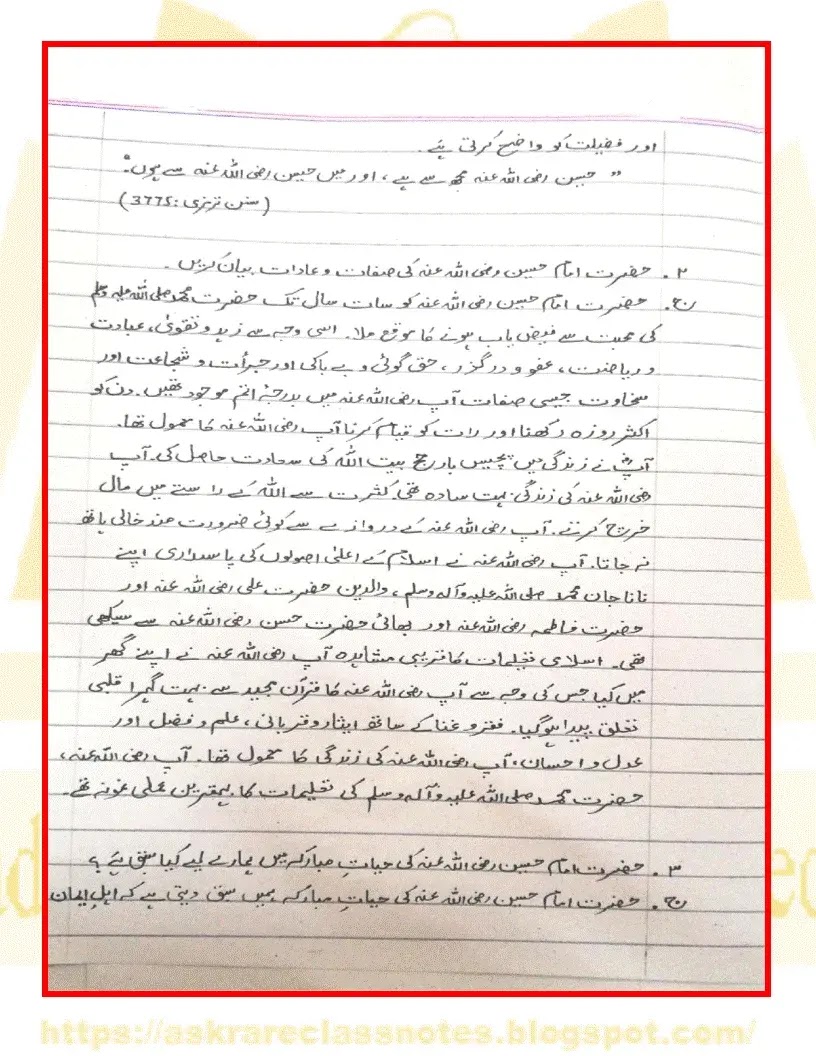 اور فضیلت کو واضح کرتی ہے۔
" حسین رضی اللہ عنہ مجھ سے ہے ، اور میں حسین رضی اللہ عنہ سے ہوں"
(سنن ترمزی : 3775)
۲. حضرت امام حسین رضی اللہ عنہ کی صفات و عادات بیان کریں ۔
ج. حضرت امام حسین رضی اللہ عنہ کو سات سال تک حضرت محمد صلی اللہ علیہ وسلم
کی محبت سے فیض یاب ہونے کا موقع ملا۔ اسی وجہ سے زہد و تقویٰ، عبادت
و ریاضت ، عفو و درگزر ، حق گوئی و بے باکی اور جرأت و شجاعت اور
سخاوت جیسی صفات آپ رضی اللہ عنہ میں بدرجۂ اتم موجود تھیں۔ دن کو
اکثر روزہ رکھنا اور رات کو قیام کرنا آپ رضی اللہ عنہ کا معمول تھا۔
آپؓ نے زندگی میں پچیس بار حج بیت اللہ کی سعادت حاصل کی۔ آپ
رضی اللہ عنہ کی زندگی بہت سادہ تھی۔ کثرت سے اللہ کے راستے میں مال
خرچ کرتے۔ آپ رضی اللہ عنہ کے دروازے سے کوئی ضرورت مند خالی ہاتھ
نہ جاتا۔ آپ رضی اللہ عنہ نے اسلام کے اعلیٰ اصولوں کی پاسداری اپنے
نانا جان محمد صلی اللہ علیہ وآلہ وسلم ، والدین حضرت علی رضی اللہ عنہ اور
حضرت فاطمہ رضی اللہ عنہ اور بھائی حضرت حسن رضی اللہ عنہ سے سیکھی
تھی۔ اسلامی تعلیمات کا قریبی مشاہدہ آپ رضی اللہ عنہ نے اپنے گھر
میں کیا جس کی وجہ سے آپ رضی اللہ عنہ کا قرآن مجید سے بہت گہرا قلبی
تعلق پیدا ہوگیا۔ فقر و غنا کے ساتھ ایثار و قربانی ، علم و فضل اور
عدل و احسان ، آپ رضی اللہ عنہ کی زندگی کا معمول تھا۔ آپ رضی اللہ عنہ ،
حضرت محمد صلی اللہ علیہ وآلہ وسلم کی تعلیمات کا بہترین عملی نمونہ تھے۔
۳. حضرت امام حسین رضی اللہ عنہ کی حیاتِ مبارکہ میں ہمارے لیے کیا سبق ہے ؟
ج. حضرت امام حسین رضی اللہ عنہ کی حیاتِ مبارکہ ہمیں سبق دیتی ہے کہ اہلِ ایمان
https://askrareclassnotes.blogspot.com/